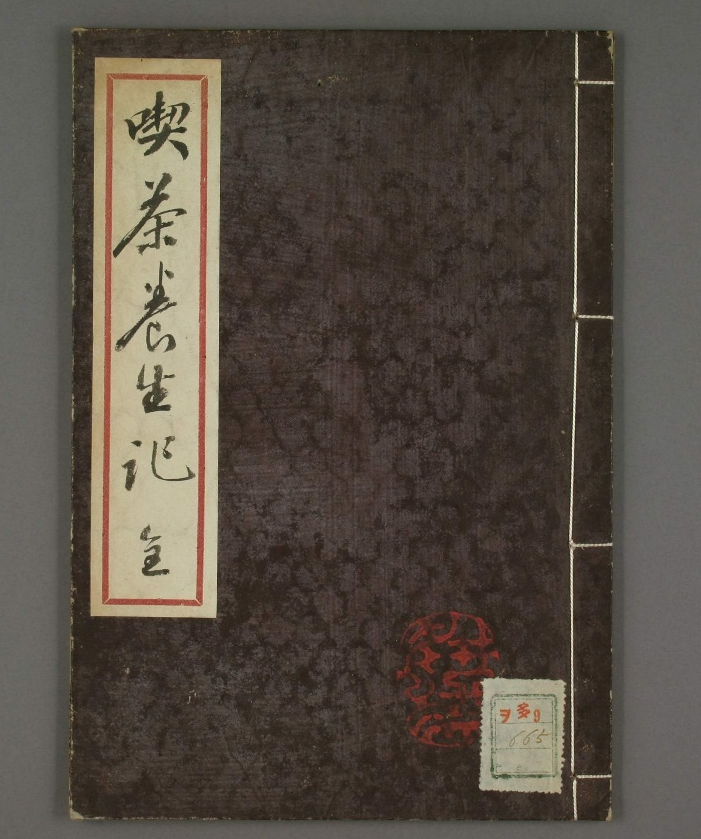 喫茶養生記 全
ヲ多9
665